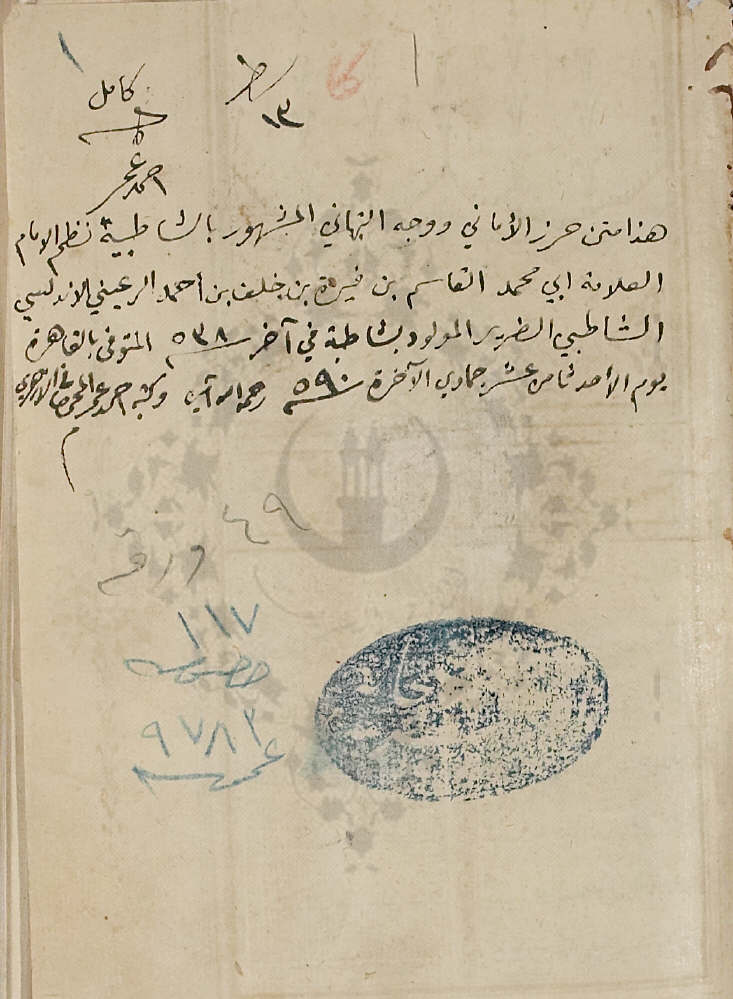 ١
كامل
١٣
احمد عمر
هذا متن حرز الأماني ووجه التهاني المشهور بالشاطبية نظم الامام
العلامة ابي محمد القاسم بن فيرة بن خلف بن احمد الرعيني الاندلسي
الشاطبي الضرير المولود بشاطبة في آخر سنة ٥٣٨ المتوفى بالقاهرة
يوم الأحد ثامن عشر جمادي الآخرة سنة ٥٩٠ رحمه الله آمين وكتبه احمد عمر المحمصاني الازهري
٤٩
ورقه
١١٧
خصوصيه
٩٧٨٢
عموميه